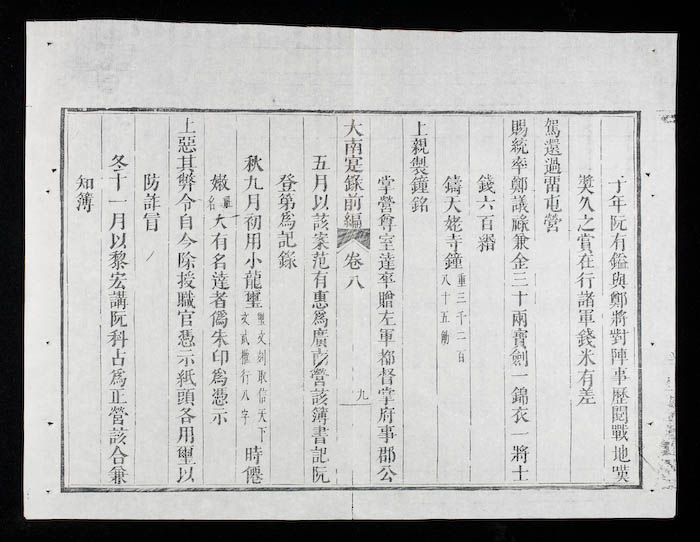 于年阮有鎰與鄭將對陣事歷閱戰地嘆
獎久之賞在行諸軍錢米有差
駕還過雷屯營
賜統率鄭議祿兼金三十兩寶劍一錦衣一將士
錢六百緡
鑄天姥寺鐘重三千二百八十五觔
上親製鐘銘
掌營尊室達卒贈左軍都督掌府事郡公
大南寔錄前編 卷八 九
五月以該案范有惠為廣南營該簿書記阮
登第為記錄
秋九月初用小龍璽璽文刻取信天下文武權行八字時僊
嫩縣名大有名達者偽朱印為憑示
上惡其弊令自今除授職官憑示紙頭各用璽以
防詐冒
冬十一月以黎宏講阮科占為正營該合兼
知簿